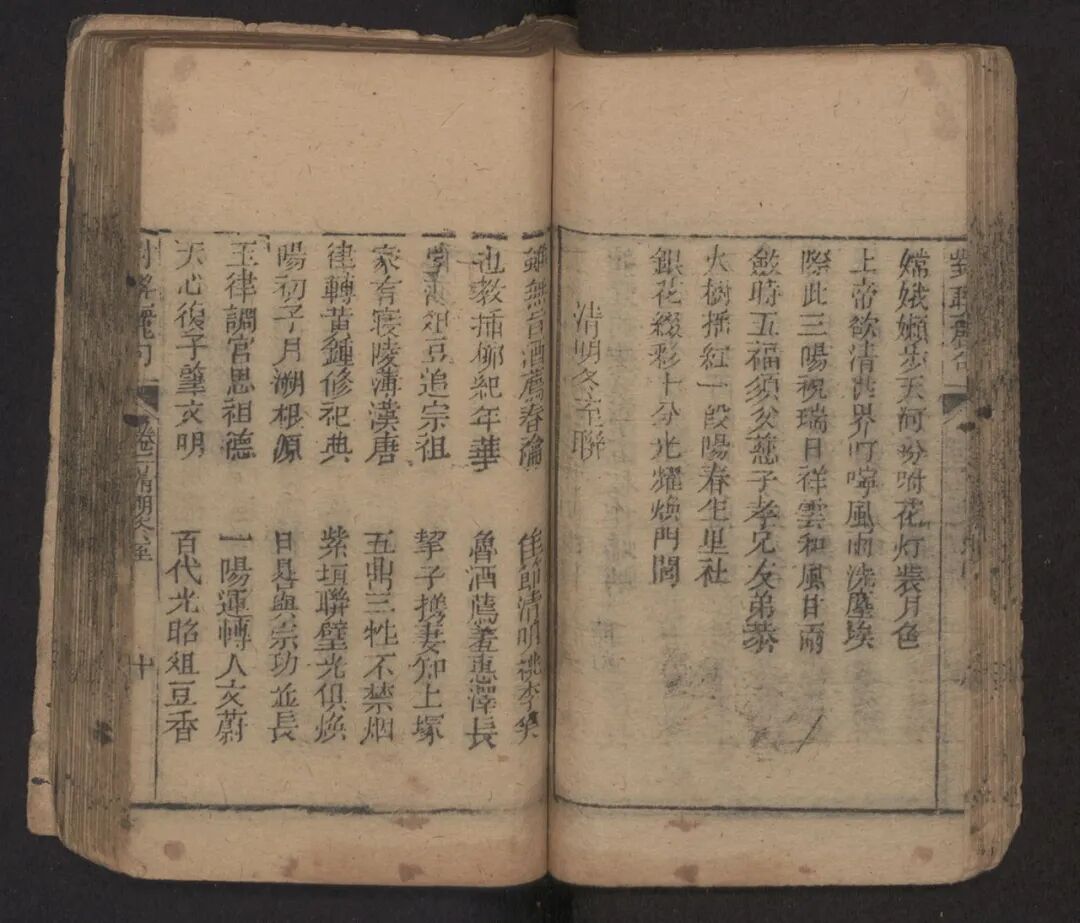 嫦娥嬾步天河吩咐花灯裝月色
上帝欲清世界叮嚀風雨洗塵埃
際此三陽祝瑞日祥雲和風甘雨
斂時五福須父慈子孝兄友弟恭
火樹揺紅一段陽春生里社
銀花綴彩十分光耀煥門閭
清明冬至聯
雖無旨酒薦春瀹
佳節清明桃李笑
也教插柳紀年華
魯酒薦羞惠澤長
俎豆追宗祖
挈子携妻知上塚
家有寢陵薄漢唐
五鼎三牲不禁烟
律轉黃鍾修祀典
紫垣聯壁光俱煥
陽初子月溯根源
日晷與宗功並長
玉律調宮思祖德
一陽運轉人文蔚
天心復子肇文明
百代光昭俎豆香
清明冬至
十